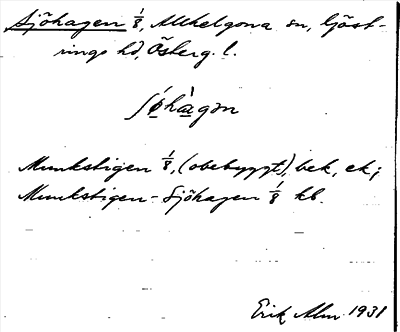 Sjöhagen 1/8, Allhelgona sn, Göst-
rings hd, Österg. l.
ʃø̀hàgən
Munkstigen 1/8, (obebyggt), bek. ek;
Munkstigen-Sjöhagen 1/8 kb.
Erik Alm 1931